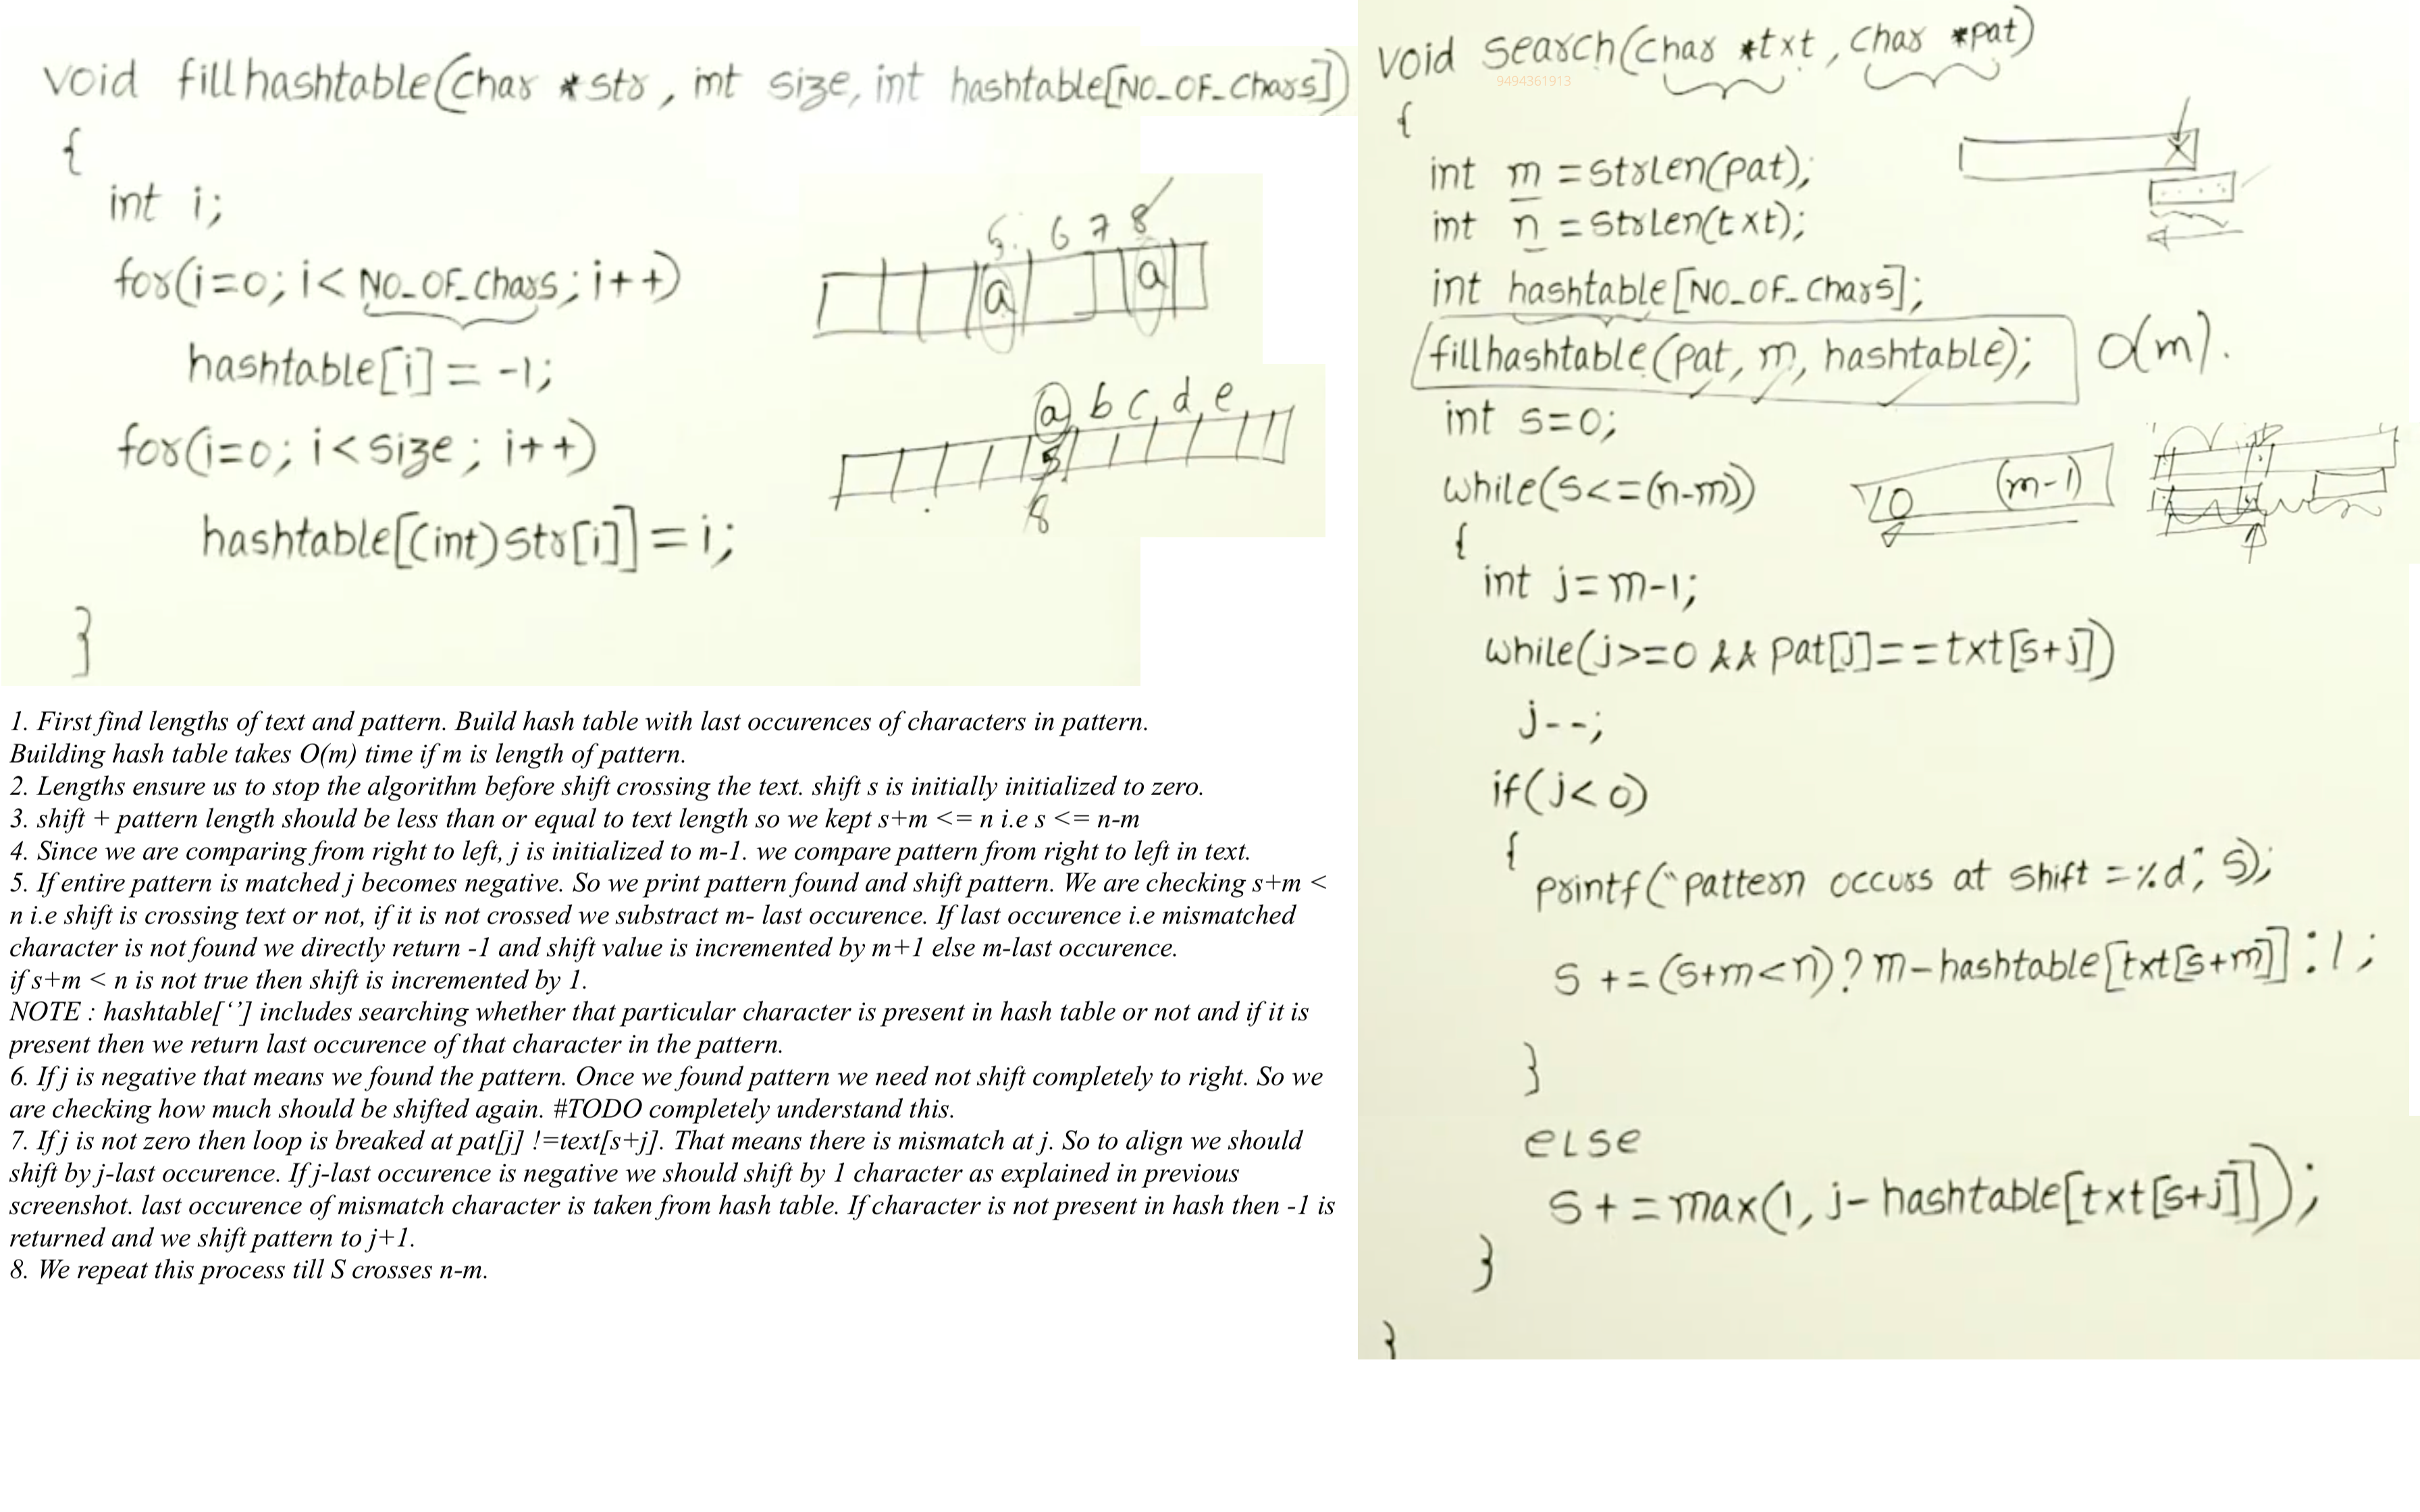 void fillhashtable(char *str, int size, int hashtable[NO_OF_Chars])
{
int i;
for(i=0; i< NO_OF_Chars; i++)
hashtable[i] = -1;
for(i=0; i<size; i++)
hashtable[(int)str[i]] = i;
}
5 6 7 8
a a
a b c, d, e,
8
1. First find lengths of text and pattern. Build hash table with last occurences of characters in pattern.
Building hash table takes O(m) time if m is length of pattern.
2. Lengths ensure us to stop the algorithm before shift crossing the text. shift s is initially initialized to zero.
3. shift + pattern length should be less than or equal to text length so we kept s+m <= n i.e s <= n-m
4. Since we are comparing from right to left, j is initialized to m-1. we compare pattern from right to left in text.
5. If entire pattern is matched j becomes negative. So we print pattern found and shift pattern. We are checking s+m <
n i.e shift is crossing text or not, if it is not crossed we substract m- last occurence. If last occurence i.e mismatched
character is not found we directly return -1 and shift value is incremented by m+1 else m-last occurence.
if s+m < n is not true then shift is incremented by 1.
NOTE : hashtable[‘’] includes searching whether that particular character is present in hash table or not and if it is
present then we return last occurence of that character in the pattern.
6. If j is negative that means we found the pattern. Once we found pattern we need not shift completely to right. So we
are checking how much should be shifted again. #TODO completely understand this.
7. If j is not zero then loop is breaked at pat[j] !=text[s+j]. That means there is mismatch at j. So to align we should
shift by j-last occurence. If j-last occurence is negative we should shift by 1 character as explained in previous
screenshot. last occurence of mismatch character is taken from hash table. If character is not present in hash then -1 is
returned and we shift pattern to j+1.
8. We repeat this process till S crosses n-m.
void search(char *txt, char *pat)
9494361913
{
int m = strlen(pat);
int n = strlen(txt);
int hashtable[NO_OF_Chars];
fillhashtable(pat, m, hashtable); O(m).
int s=0;
while(s<=(n-m))
0 (m-1)
{
int j=m-1;
while(j>=0 && pat[j]==txt[s+j])
j--;
if(j<0)
{
printf("pattern occurs at shift =%d", s);
s += (s+m<n)? m-hashtable[txt[s+m]] : 1;
}
else
s += max(1, j-hashtable[txt[s+j]]);
}
}